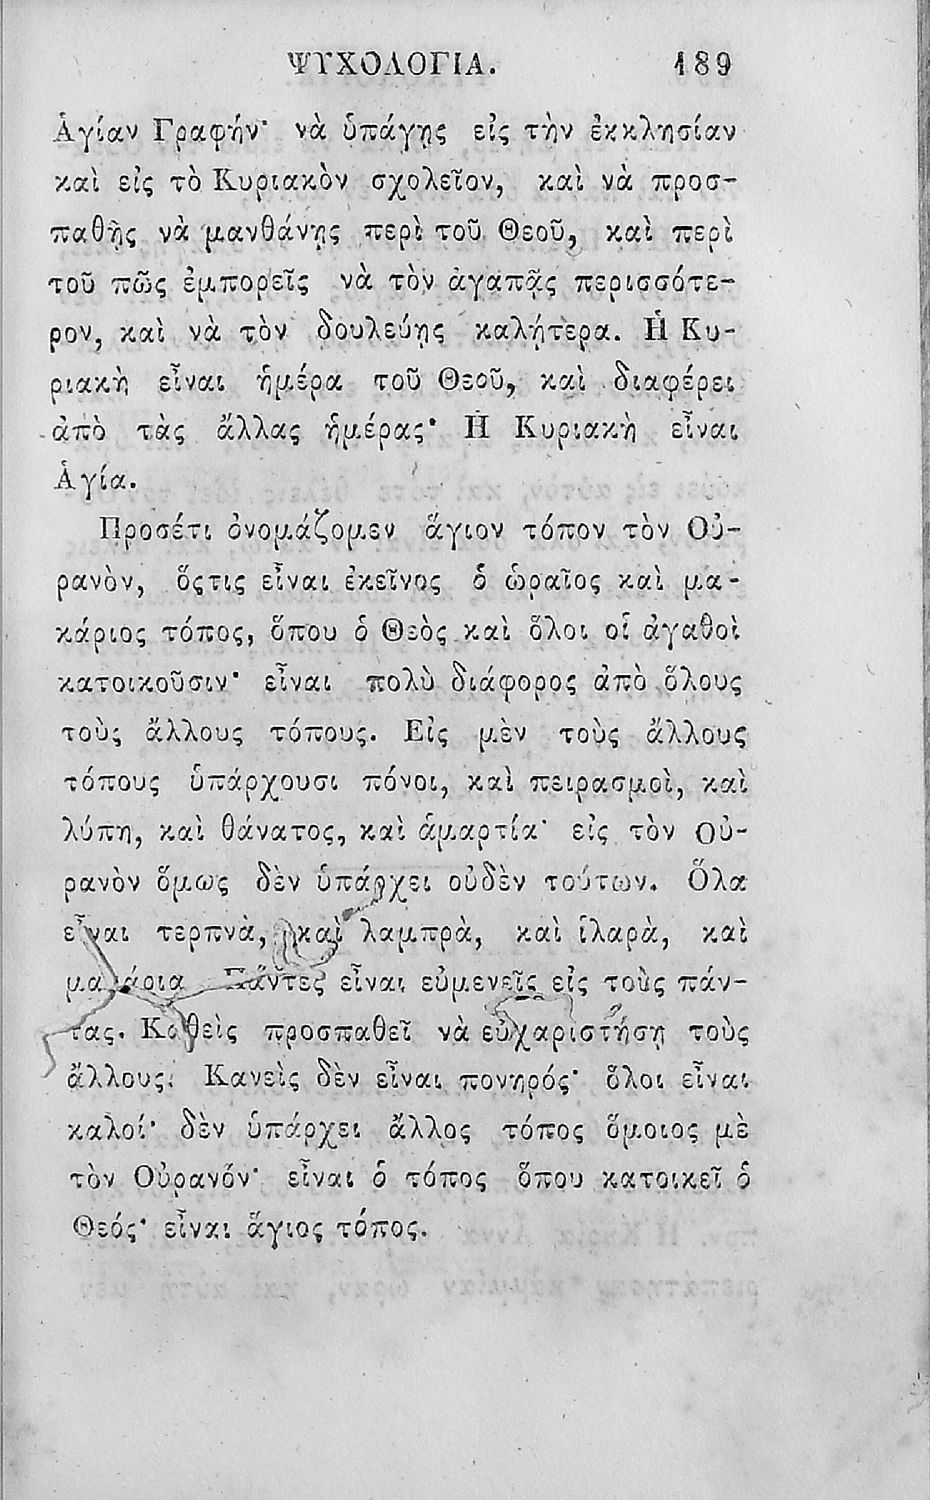 ΨΥΧΟΛΟΓΙΑ. 189
Ἁγίαν Γραφήν· νὰ ὑπάγῃς εἰς τὴν ἐκκλησίαν
καὶ εἰς τὸ Κυριακὸν σχολεῖον, καὶ νὰ προσ-
παθῇς νὰ μανθάνῃς περὶ τοῦ Θεοῦ, καὶ περὶ
τοῦ πῶς ἐμπορεῖς νὰ τὸν ἀγαπᾷς περισσότε-
ρον, καὶ νὰ τὸν δουλεύῃς καλήτερα. Ἡ Κυ-
ριακὴ εἶναι ἡμέρα τοῦ Θεοῦ, καὶ διαφέρει
ἀπὸ τὰς ἄλλας ἡμέρας· Ἡ Κυριακὴ εἶναι
Ἁγία.
Προσέτι ὀνομάζομεν ἅγιον τόπον τὸν Οὐ-
ρανὸν, ὅςτις εἶναι ἐκεῖνος ὁ ὡραῖος καὶ μα-
κάριος τόπος, ὅπου ὁ Θεὸς καὶ ὅλοι οἱ ἀγαθοὶ
κατοικοῦσιν· εἶναι πολὺ διάφορος ἀπὸ ὅλους
τοὺς ἄλλους τόπους. Εἰς μὲν τοὺς ἄλλους
τόπους ὑπάρχουσι πόνοι, καὶ πειρασμοὶ, καὶ
λύπη, καὶ θάνατος, καὶ ἁμαρτία· εἰς τὸν Οὐ-
ρανὸν ὅμως δὲν ὑπάρχει οὐδὲν τούτων. Ὅλα
εἶναι τερπνὰ, καὶ λαμπρὰ, καὶ ἱλαρὰ, καὶ
μακάρια Πάντες εἶναι εὐμενεῖς εἰς τοὺς πάν-
τας. Καθεὶς προσπαθεῖ νὰ εὐχαριστήσῃ τοὺς
ἄλλους. Κανεὶς δὲν εἶναι πονηρός· ὅλοι εἶναι
καλοί· δὲν ὑπάρχει ἄλλος τόπος ὅμοιος μὲ
τὸν Οὐρανόν· εἶναι ὁ τόπος ὅπου κατοικεῖ ὁ
Θεός· εἶναι ἅγιος τόπος.